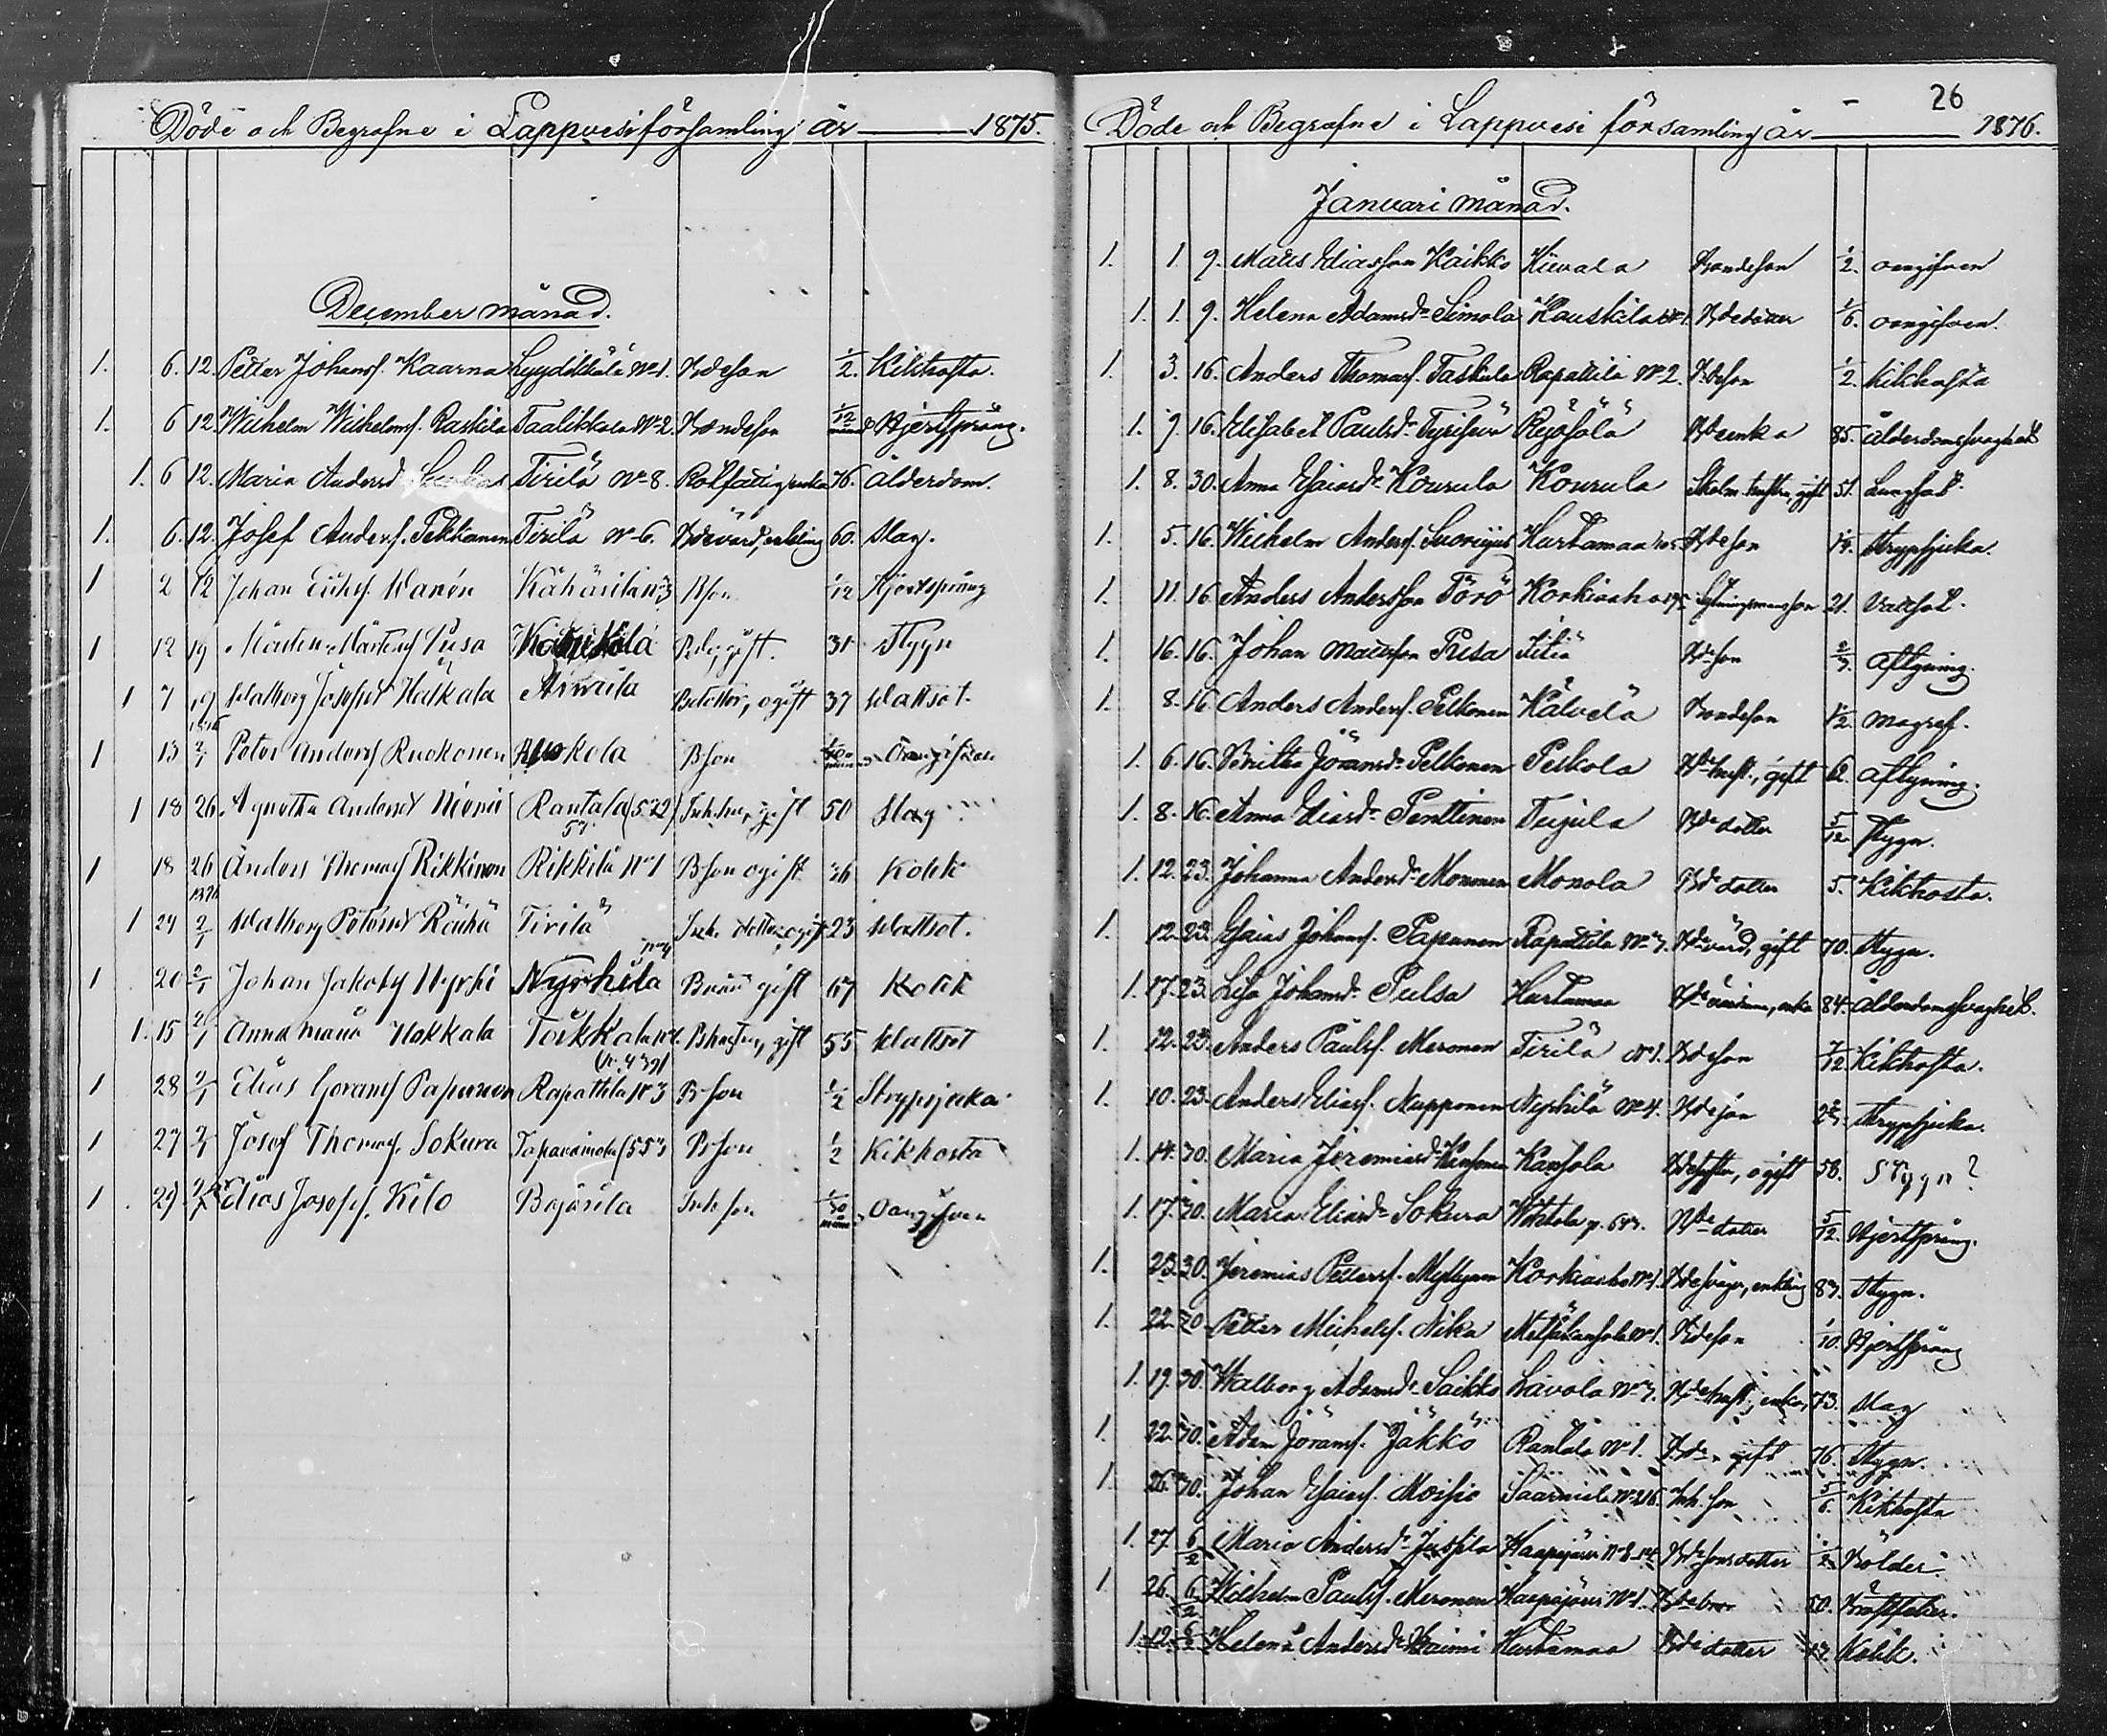 Döde och Begrafne i Lappvesi församling år 1875.
December månad.
1. 6. 12. Petter Johansf. Kaarna Lyydikkälä No 1. Bdeson 1/2. Kikhosta.
1. 6 12. Wilhelm Wilhelmsf. Raskila Taalikkala No 2. Bondeson 1/12 månad Hjertsprång.
1. 6 12. Maria Andersd Tirilä No 8. Rotfattig enka 76. Ålderdom.
1. 6. 12. Josef Andersf. Pekkanen Tirilä No 6. Bdevärd, enkling 60. Slag.
1 2 12 Johan Erichsf. Wanon Kähärilä n 3 Bson 1/12 Hjertsprång
1 12 19 Mårten Mårtensf Pusa Bde, gift. 31 Stygn
1 7 19 Walborg Josefsd Haikala Armila Bdotter, ogift 37 Wattsot.
1 13 2/1 1876 Peter Andersf Ruokonen Ruokola Bson Oangifven
1 18 26. Agnetha Andersd Niemi Rantala (522) Inh. hu, gift 50 Slag
57
1 18 26 Anders Thomasf Rikkinen Rikkilä No 1 Bson ogift 26 Kolik
1 24 2/1 1876 Walborg Petersd Räihä Tirilä Inh. dotter ogift 23 Wattsot.
1 20 2/1 Johan Jakobsf Nyrhi Nyrhilä No 4 gift 67 Kolik
1. 15 2/1 Anna Maria Hakkala Toikkala No 1. Bhustru, gift 55 Wattsot
1 28 2/1 Elias Göransf Papunen Rapattila No 3 Bson 1/2 Strypsjuka
1 27 2/1 Josef Thomasf. Sokura Bson 1/2 Kikhosta
1 29 2/1 Elias Josefsf. Kilo Bojärilä Inh son Oangifven
26
Döde och Begrafne i Lappvesi församling år 1876.
Januari månad.
1. 1. 9. Matts Eliasson Kaikko Hiivala Bondeson 1/2. oangifven
1. 1. 9. Helena Adamsd:r Simola Kauskila No 1. Bdedotter 1/6. oangifven.
1. 3. 16. Anders Thomasf. Taskula Rapattila No 2. Bdeson 1/2. Kikhosta
1. 9. 16. Elisabet Paulsd:r Pyöfölä Bdeenka 85. ålderdomsvaghet
1. 8. 30. Anna Esaiasd:r Kourula Kourula hustru, gift 51. Lungsot.
1. 5. 16. Wilhelm Andersf. Hurtamaa Bdeson Strypsjuka.
1. 11. 16 Anders Andersson Törö Korkiaaho 21. Vattsot.
1. 16. 16. Johan Mattsson Pusa Bdeson 2/3. Aftyning.
1. 8. 16. Anders Andersf. Pelkonen Kälvelä Bondeson 1/2. Magref.
1. 6. 16. Britha Göransd:r Pelkonen Peltola Bdehust., gift 62. Aftyning.
1. 8. 16. Anna Eliasd:r Penttinen Bde dotter 5/12. Stygn.
1. 12. 23. Johanna Andersd:r Mononen Monola Bde dotter 5. Kikhosta.
1. 12. 23. Esaias Johansf. Papunen Rapattila No 3. Bdevärd, gift 70. Stygn.
1. 17. 23. Lisa Johansd:r Pulsa Hurtamaa Bde enka 84. Ålderdomsvaghet.
1. 12. 23. Anders Paulsf. Meronen Tirilä No 1. Bdeson 7/12 Kikhosta.
1. 10. 23. Anders Eliasf. Nupponen Nyrhilä No 4. Bdeson Strypsjuka.
1. 14. 30. Maria Jeremiasd:r Kansonen Kansola Bdesyster, ogift 58. Stygn?
1. 17. 30. Maria Eliasd:r Sokura Bde dotter 5/12. Hjertsprång.
1. 23. 30. Jeremias Pettersf. Myllynen Korkiaaho No 1. Bdesvåger, enkling 83. Stygn.
1. 22. 30. Petter Michelsf. Nika Metsäkansola No 1. Bdeson 1/10. Hjertsprång
1. 19. 30. Walborg Adamsd:r Saikko Lavola No 3. Bde hust., enka, 73. Slag
1. 22. 30. Adam Göransf. Jäkkö Rantala No 1. Bde, gift 76. Stygn.
1. 26. 30. Johan Esaiasf. Moisio Inh. son 5/6. Kikhosta
1. 27. 6/2 Maria Andersd:r Jussila Haapajärvi No 8 Bde sons dotter 1/2. Bölder.
1. 26. 6/2 Wilhelm Paulsf. Meronen Haapajärvi No 1. Bdebror 50. Bröstfeber.
1. 12. 6/2 Helena Andersd:r Hurtamaa Bde dotter Kolik.